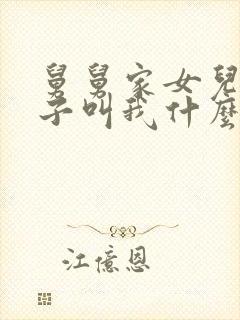 舅舅家女兒
子叫我什麼
江億恩